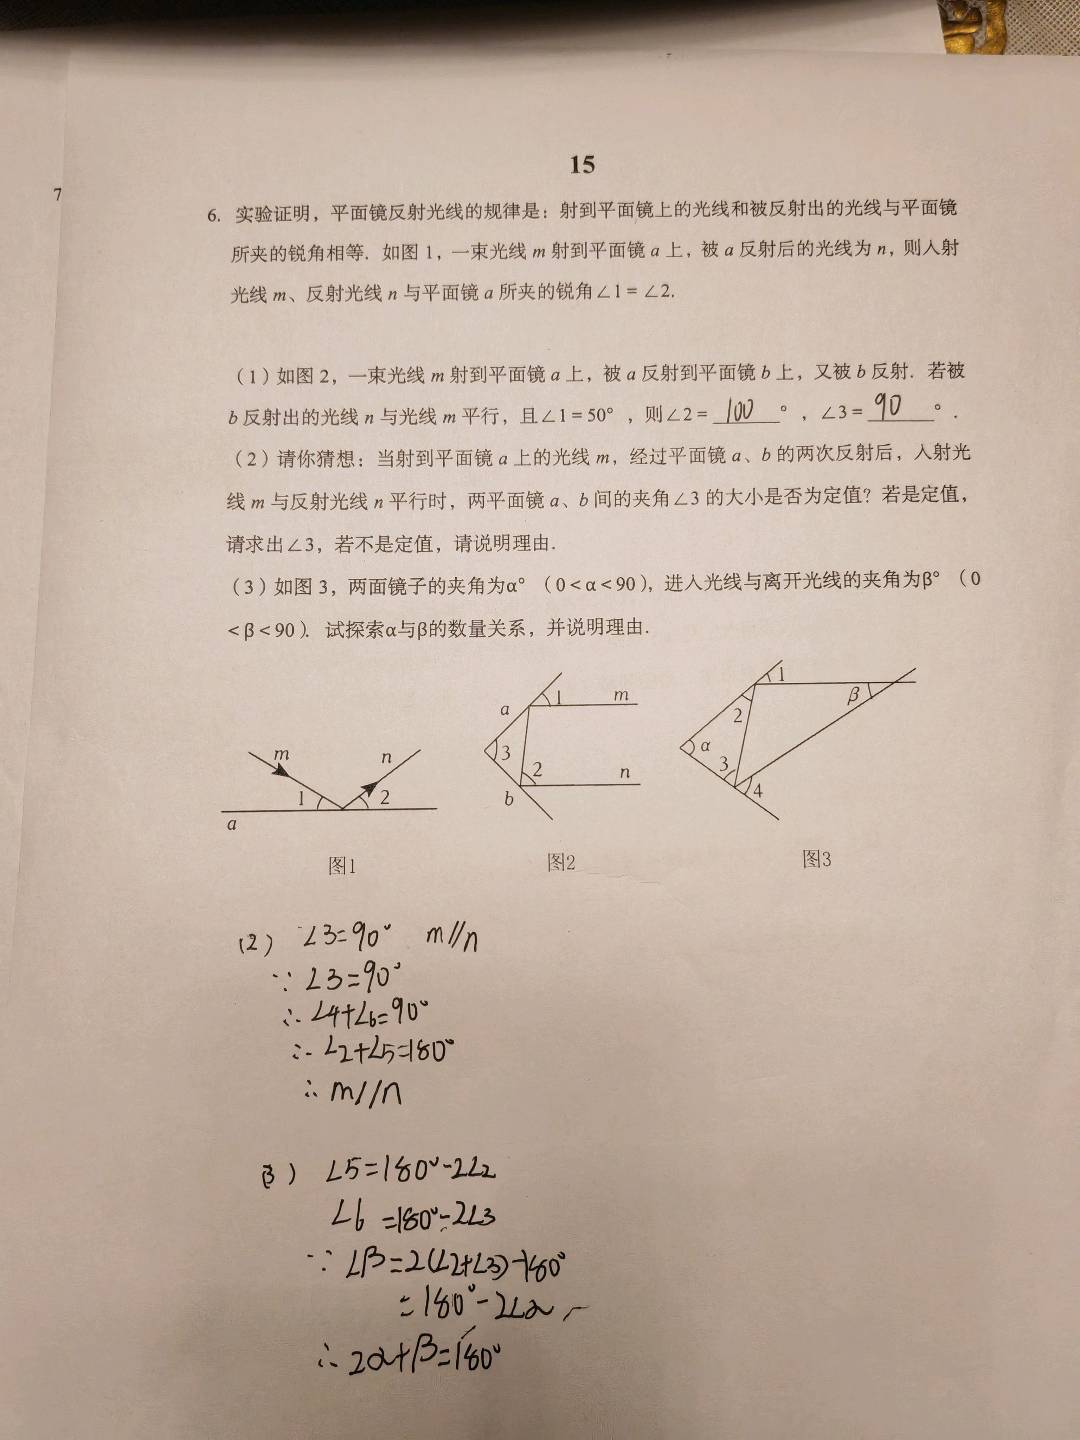 15
7
6. 实验证明，平面镜反射光线的规律是：射到平面镜上的光线和被反射出的光线与平面镜
所夹的锐角相等．如图 1，一束光线 m 射到平面镜 a 上，被 a 反射后的光线为 n，则入射
光线 m、反射光线 n 与平面镜 a 所夹的锐角∠1 = ∠2.
（1）如图 2，一束光线 m 射到平面镜 a 上，被 a 反射到平面镜 b 上，又被 b 反射．若被
b 反射出的光线 n 与光线 m 平行，且∠1 = 50°，则∠2 = 100 °，∠3 = 90 °.
（2）请你猜想：当射到平面镜 a 上的光线 m，经过平面镜 a、b 的两次反射后，入射光
线 m 与反射光线 n 平行时，两平面镜 a、b 间的夹角∠3 的大小是否为定值？若是定值，
请求出∠3，若不是定值，请说明理由．
（3）如图 3，两面镜子的夹角为α°（0 < α < 90），进入光线与离开光线的夹角为β°（0
< β < 90）．试探索α与β的数量关系，并说明理由．
m n 1 2 a
图1
a 1 m 3 2 n b
图2
1 2 β α 3 4
图3
(2) ∠3=90° m//n
∵ ∠3=90°
∴ ∠4+∠6=90°
∴ ∠2+∠5=180°
∴ m//n
(3) ∠5=180°-2∠2
∠6=180°-2∠3
∵ ∠β=2(∠2+∠3)-180°
=180°-2∠α
∴ 2α+β=180°